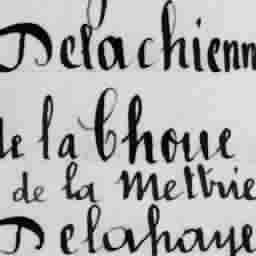 Delachienn
de la Choue
de la Mettrie
Delahaye